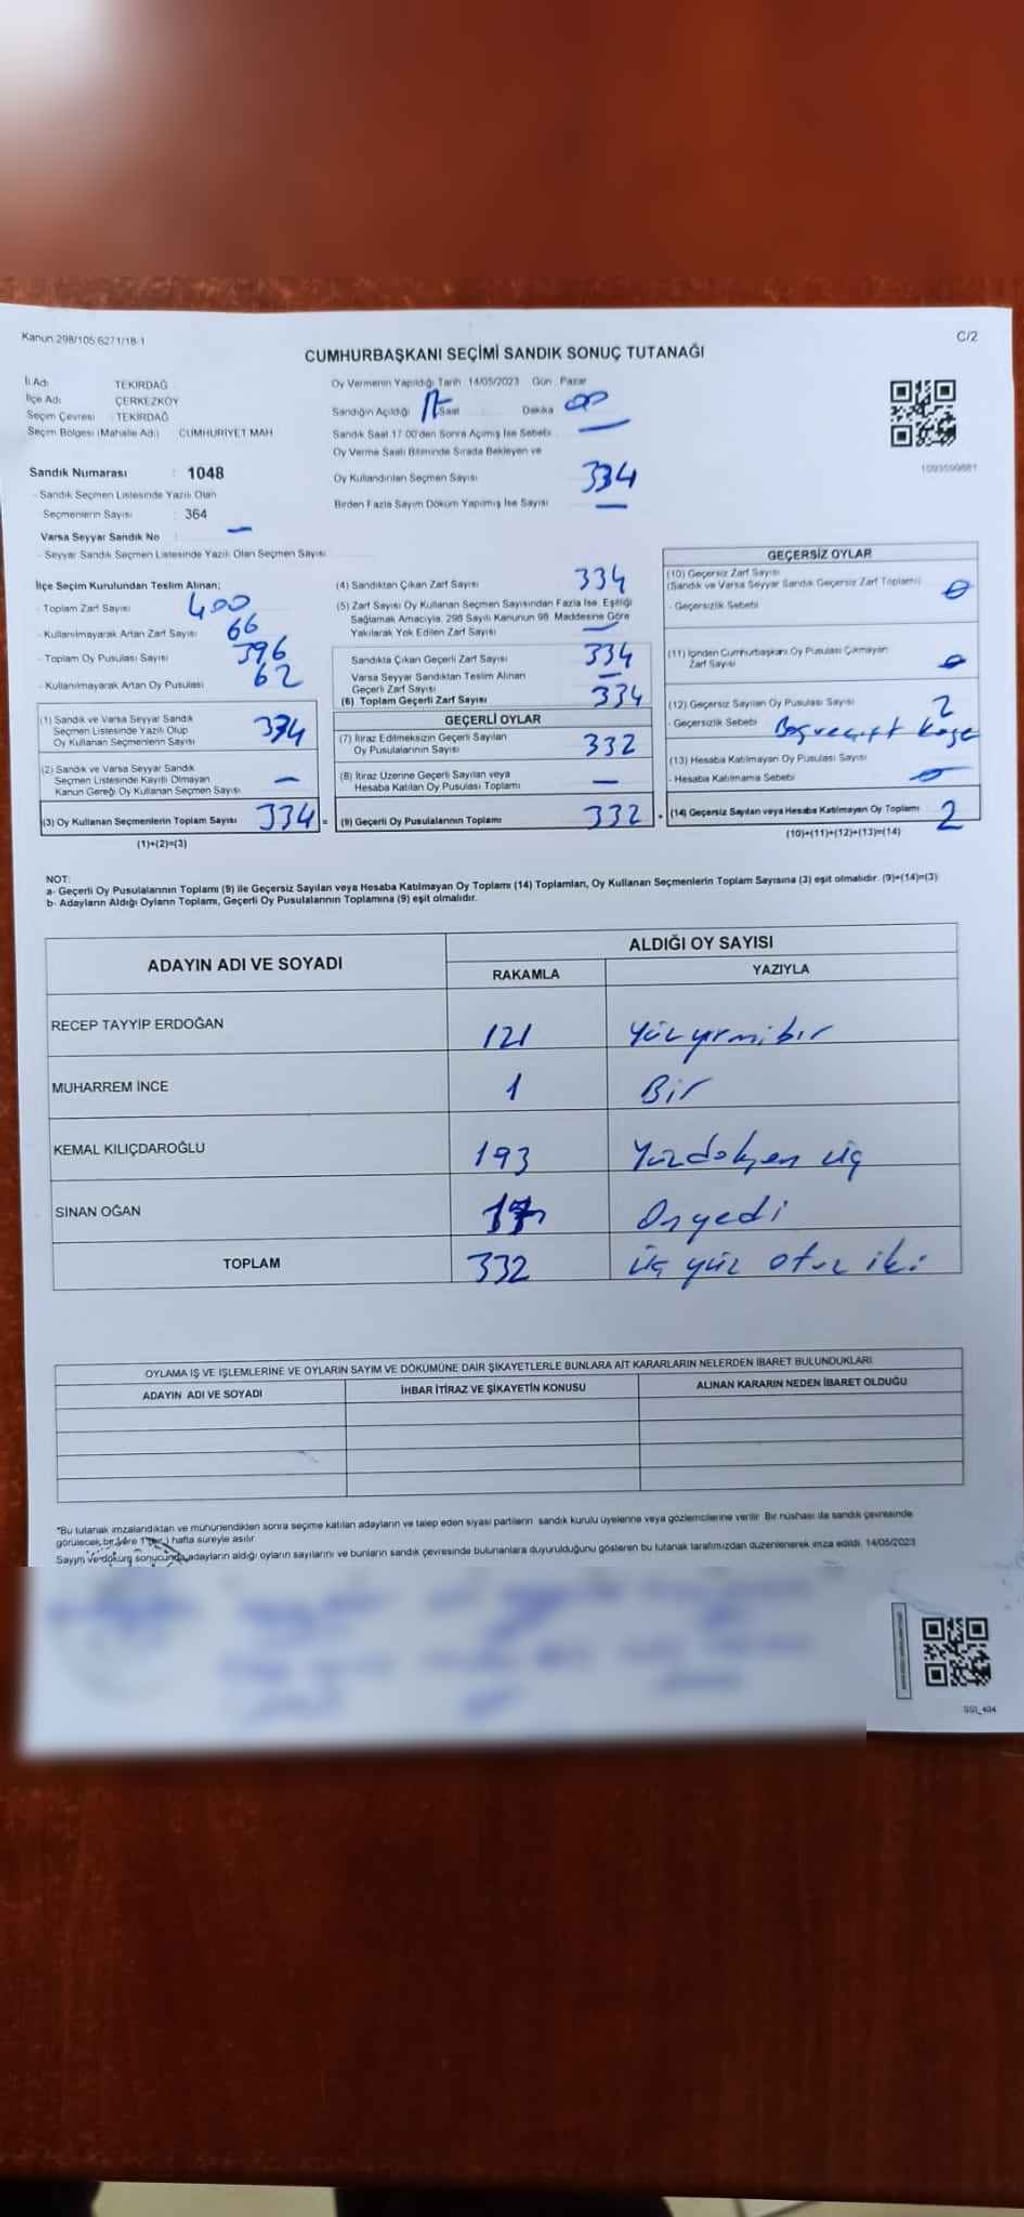 Kanun 298/105 6271/18-1
C/2
CUMHURBAŞKANI SEÇİMİ SANDIK SONUÇ TUTANAĞI
İl Adı TEKİRDAĞ
İlçe Adı: ÇERKEZKÖY
Seçim Çevresi : TEKİRDAĞ
Seçim Bölgesi (Mahalle Adı) CUMHURİYET MAH
Oy Vermenin Yapıldığı Tarih 14/05/2023 Gün Pazar
Sandığın Açıldığı 17 Saat Dakika 00
Sandık Saat 17 00'den Sonra Açımış İse Sebebi —
Oy Verme Saati Bitiminde Sırada Bekleyen ve
Oy Kullandırılan Seçmen Sayısı 334
Birden Fazla Sayım Döküm Yapılmış İse Sayısı —
Sandık Numarası : 1048
- Sandık Seçmen Listesinde Yazılı Olan
Seçmenlerin Sayısı : 364
Varsa Seyyar Sandık No —
- Seyyar Sandık Seçmen Listesinde Yazılı Olan Seçmen Sayısı
İlçe Seçim Kurulundan Teslim Alınan;
- Toplam Zarf Sayısı 400
- Kullanılmayarak Artan Zarf Sayısı 66
- Toplam Oy Pusulası Sayısı 396
- Kullanılmayarak Artan Oy Pusulası 62
(1) Sandık ve Varsa Seyyar Sandık
Seçmen Listesinde Yazılı Olup
Oy Kullanan Seçmenlerin Sayısı 334
(2) Sandık ve Varsa Seyyar Sandık
Seçmen Listesinde Kayıtlı Olmayan
Kanun Gereği Oy Kullanan Seçmen Sayısı —
(3) Oy Kullanan Seçmenlerin Toplam Sayısı 334 =
(1)+(2)=(3)
(4) Sandıktan Çıkan Zarf Sayısı 334
(5) Zarf Sayısı Oy Kullanan Seçmen Sayısından Fazla İse, Eşitliği
Sağlamak Amacıyla, 298 Sayılı Kanunun 98. Maddesine Göre
Yakılarak Yok Edilen Zarf Sayısı —
Sandıkta Çıkan Geçerli Zarf Sayısı 334
Varsa Seyyar Sandıktan Teslim Alınan
Geçerli Zarf Sayısı —
(6) Toplam Geçerli Zarf Sayısı 334
GEÇERLİ OYLAR
(7) İtiraz Edilmeksizin Geçerli Sayılan
Oy Pusulalarının Sayısı 332
(8) İtiraz Üzerine Geçerli Sayılan veya
Hesaba Katılan Oy Pusulası Toplamı —
(9) Geçerli Oy Pusulalarının Toplamı 332 +
1093599881
GEÇERSİZ OYLAR
(10) Geçersiz Zarf Sayısı
(Sandık ve Varsa Seyyar Sandık Geçersiz Zarf Toplamı) 0
- Geçersizlik Sebebi
(11) İçinden Cumhurbaşkanı Oy Pusulası Çıkmayan
Zarf Sayısı 0
(12) Geçersiz Sayılan Oy Pusulası Sayısı 2
- Geçersizlik Sebebi Boş ve çift kaşe
(13) Hesaba Katılmayan Oy Pusulası Sayısı 0
- Hesaba Katılmama Sebebi
(14) Geçersiz Sayılan veya Hesaba Katılmayan Oy Toplamı 2
(10)+(11)+(12)+(13)=(14)
NOT:
a- Geçerli Oy Pusulalarının Toplamı (9) ile Geçersiz Sayılan veya Hesaba Katılmayan Oy Toplamı (14) Toplamları, Oy Kullanan Seçmenlerin Toplam Sayısına (3) eşit olmalıdır. (9)+(14)=(3)
b- Adayların Aldığı Oyların Toplamı, Geçerli Oy Pusulalarının Toplamına (9) eşit olmalıdır.
ADAYIN ADI VE SOYADI
ALDIĞI OY SAYISI
RAKAMLA YAZIYLA
RECEP TAYYİP ERDOĞAN 121 Yüz yirmi bir
MUHARREM İNCE 1 Bir
KEMAL KILIÇDAROĞLU 193 Yüzdoksen üç
SİNAN OĞAN 17 Onyedi
TOPLAM 332 üç yüz otuz iki
OYLAMA İŞ VE İŞLEMLERİNE VE OYLARIN SAYIM VE DÖKÜMÜNE DAİR ŞİKAYETLERLE BUNLARA AİT KARARLARIN NELERDEN İBARET BULUNDUKLARI
ADAYIN ADI VE SOYADI İHBAR İTİRAZ VE ŞİKAYETİN KONUSU ALINAN KARARIN NEDEN İBARET OLDUĞU
*Bu tutanak imzalandıktan ve mühürlendikten sonra seçime katılan adayların ve talep eden siyasi partilerin sandık kurulu üyelerine veya gözlemcilerine verilir. Bir nüshası da sandık çevresinde
görülecek bir yere 1 hafta süreyle asılır
Sayım ve döküm sonucunda adayların aldığı oyların sayılarını ve bunların sandık çevresinde bulunanlara duyurulduğunu gösteren bu tutanak tarafımızdan düzenlenerek imza edildi. 14/05/2023